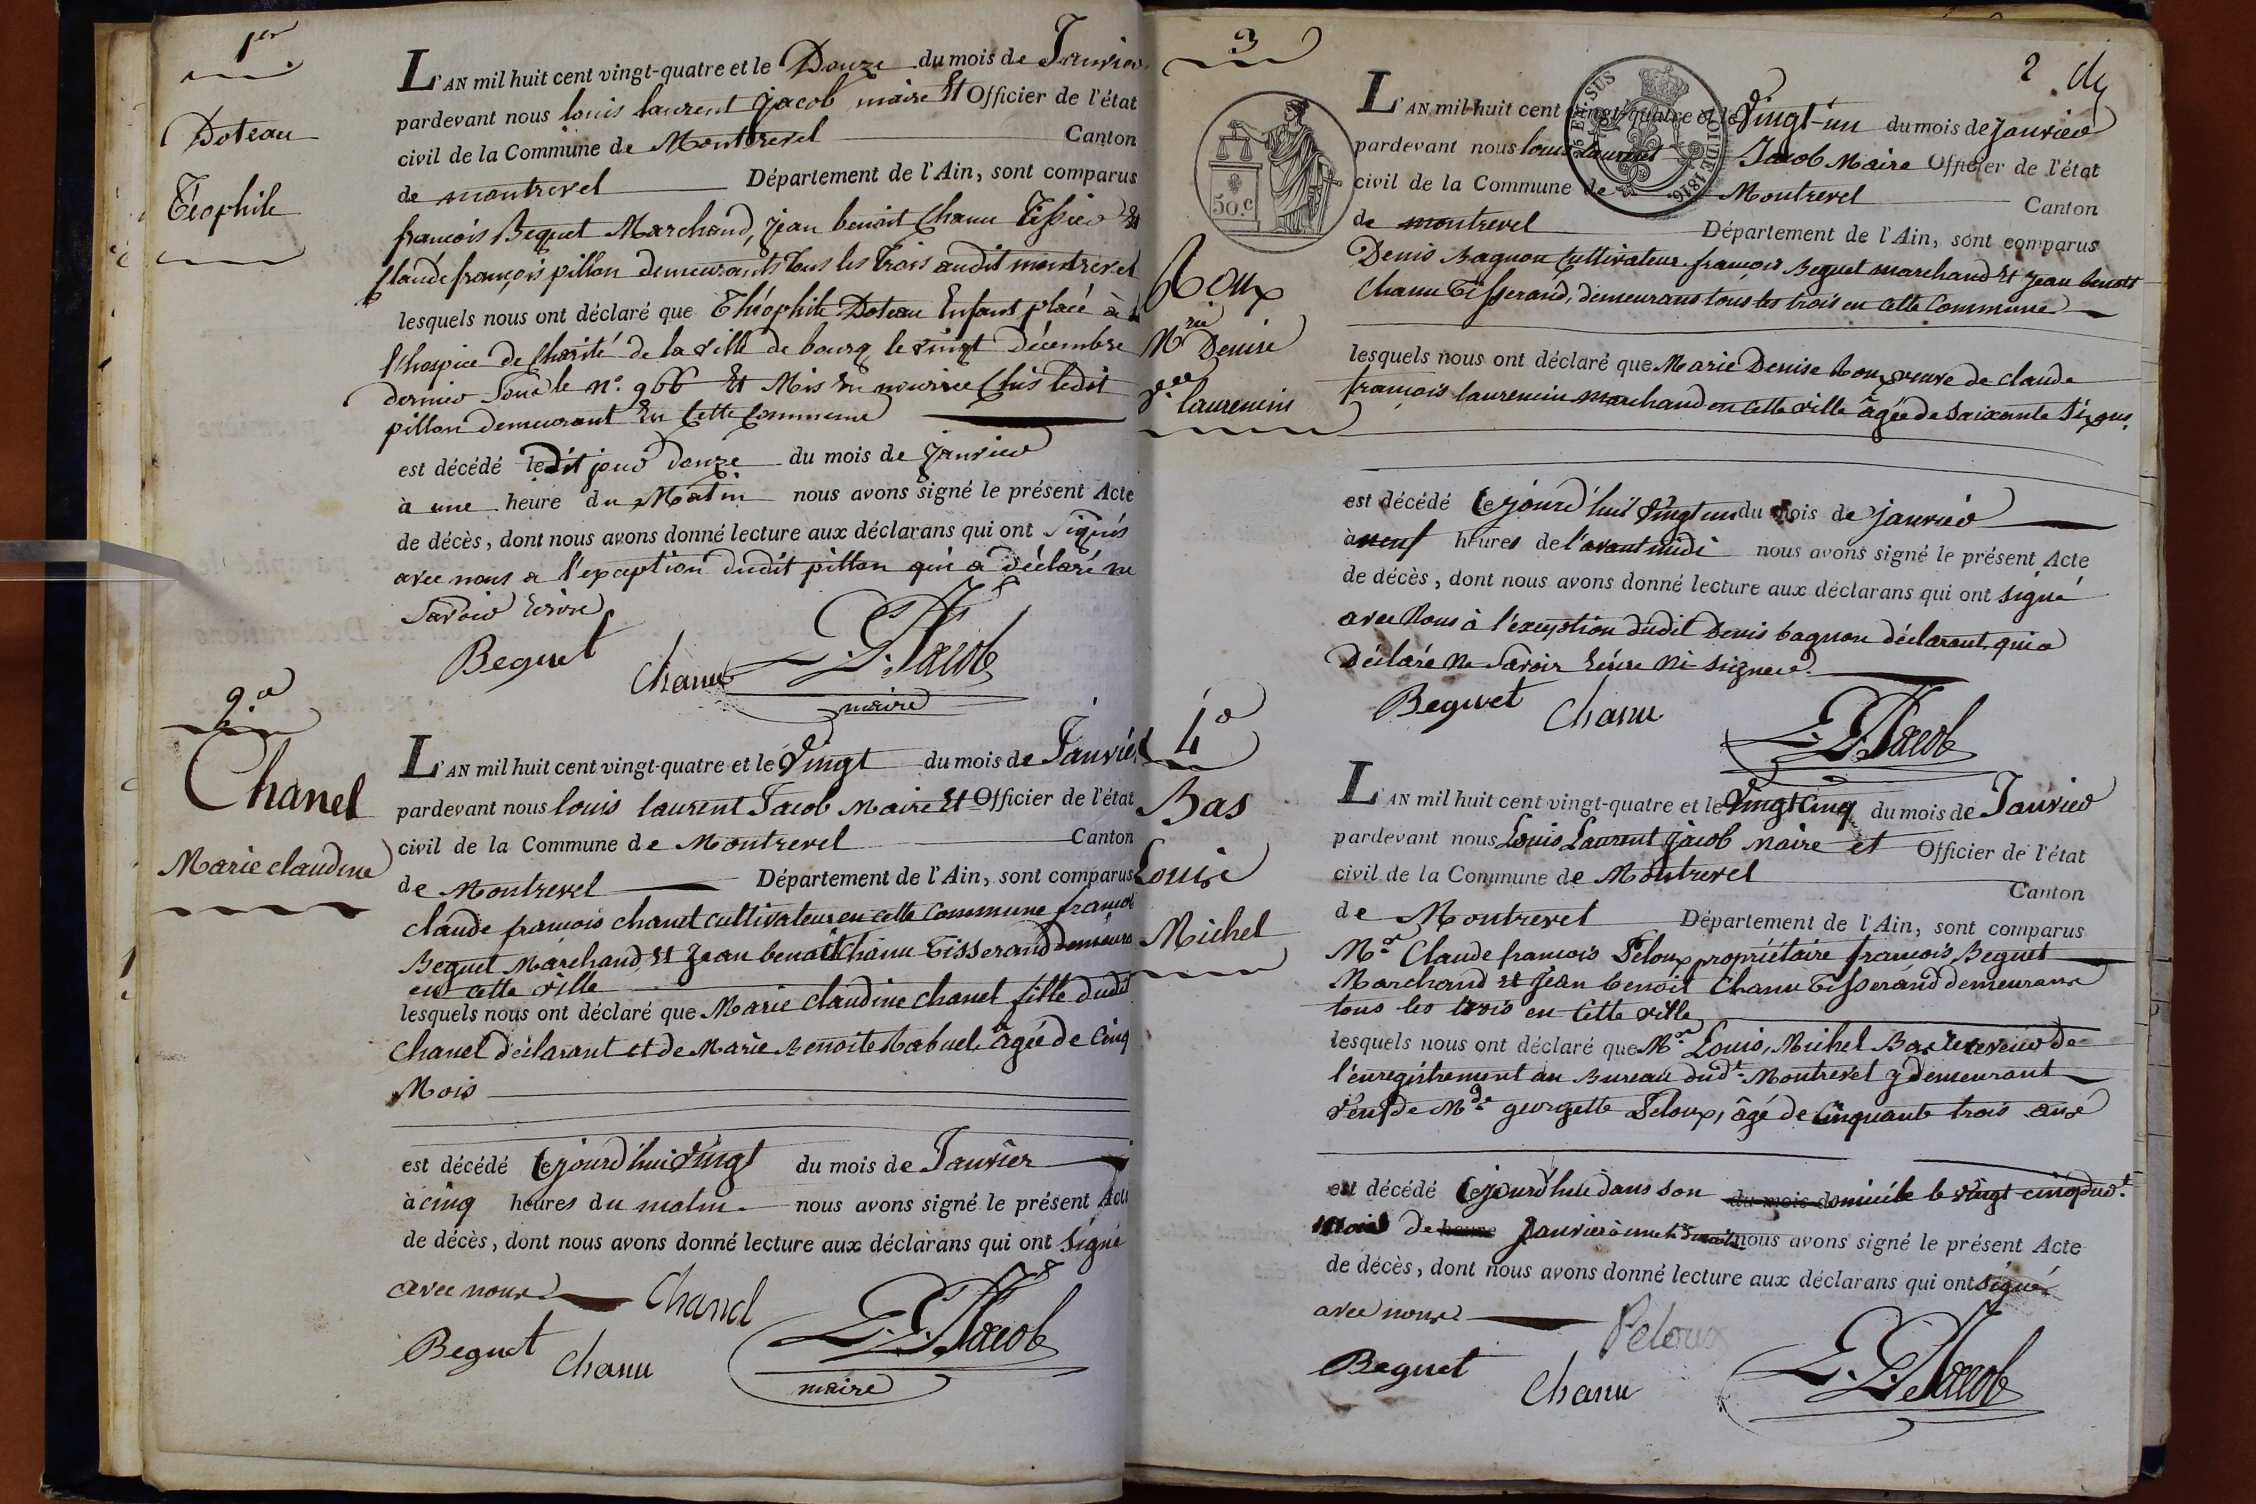 1er
Doteau
Téophile
L'AN mil huit cent vingt-quatre et le Douze du mois de Janvier
pardevant nous louis laurent jacob maire Et Officier de l'état
civil de la Commune de Montrevel Canton
de montrevel Département de l'Ain, sont comparus
francois Beguet Marchand, jean benoit Chanu Tissier Et
Claude françois pillon demeurants tous les trois audit montrevel
lesquels nous ont déclaré que Théophile Doteau Enfant placé à
l'hospice de Charité de la ville de bourg le vingt Décembre
dernier sous le n°. 966 Et Mis En nourice Chés ledit
pillon demeurant En Cette Commune
est décédé ledit jour douze du mois de janvier
à une heure du Matin nous avons signé le présent Acte
de décès, dont nous avons donné lecture aux déclarans qui ont signés
avec nous a l'exception dudit pillon qui a déclaré ne
savoir Ecrire
Beguet Chanu L. L. Jacob
maire
2.e
Chanel
Marie claudine
L'AN mil huit cent vingt-quatre et le Vingt du mois de Janvier
pardevant nous louis laurent Jacob Maire Et Officier de l'état
civil de la Commune de Montrevel Canton
de Montrevel Département de l'Ain, sont comparus
claude francois chanel cultivateur en cette Commune françois
Beguet Marchand, Et Jean benoit Chanu Tisserand demeurans
en cette ville
lesquels nous ont déclaré que Marie Claudine Chanel fille dudit
Chanel déclarant et de Marie Benoite Rabuel, âgée de Cinq
Mois
est décédé Cejourd'hui Vingt du mois de Janvier
à cinq heures du matin nous avons signé le présent Acte
de décès, dont nous avons donné lecture aux déclarans qui ont signé
avec nous Chanel
Beguet Chanu L. L. Jacob
maire
3
2
50.c
1816
Roux
Mrie Denise
Laurencin
L'AN mil huit cent vingt-quatre et le Vingt-un du mois de janvier
pardevant nous louis laurent Jacob Maire Officier de l'état
civil de la Commune de Montrevel Canton
de montrevel Département de l'Ain, sont comparus
Denis Bagnon Cultivateur françois Beguet marchand Et Jean benoit
Chanu Tisserand, demeurans tous les trois en Cette Commune
lesquels nous ont déclaré que Marie Denise Roux veuve de claude
françois laurencin marchand en cette ville âgée de Soixante Six ans,
est décédé Cejourd'hui Vingt un du mois de janvier
à neuf heures de l'avant midi nous avons signé le présent Acte
de décès, dont nous avons donné lecture aux déclarans qui ont signé
avec Nous à l'exception dudit Denis bagnon déclarant, qui a
Déclaré Ne Savoir Ecrire Ni Signer
Beguet Chanu L. L. Jacob
4.e
Bas
Louis
Michel
L'AN mil huit cent vingt-quatre et le Vingt Cinq du mois de Janvier
pardevant nous Louis Laurent Jacob Maire et Officier de l'état
civil de la Commune de Montrevel Canton
de Montrevel Département de l'Ain, sont comparus
Mr. Claude francois Peloux propriétaire francois Beguet
Marchand Et Jean benoit Chanu Tisserand demeurans
tous les trois en Cette ville
lesquels nous ont déclaré que Mr. Louis, Michel Bas Receveur de
l'enregistrement au Bureau dudt. Montrevel y demeurant
Veuf de Mde georgette Peloux, âgé de Cinquante trois ans
est décédé Cejourd'hui dans son du mois domicile le vingt cinq dudt.
mois de heure janvier à nous avons signé le présent Acte
de décès, dont nous avons donné lecture aux déclarans qui ont signé
avec nous Peloux
Beguet Chanu L. L. Jacob